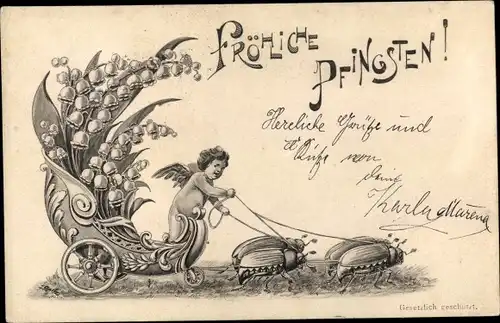 Fröhliche
Pfingsten!
Herzliche Grüße und
Küße von
dein
Karla
Gesetzlich geschützt.